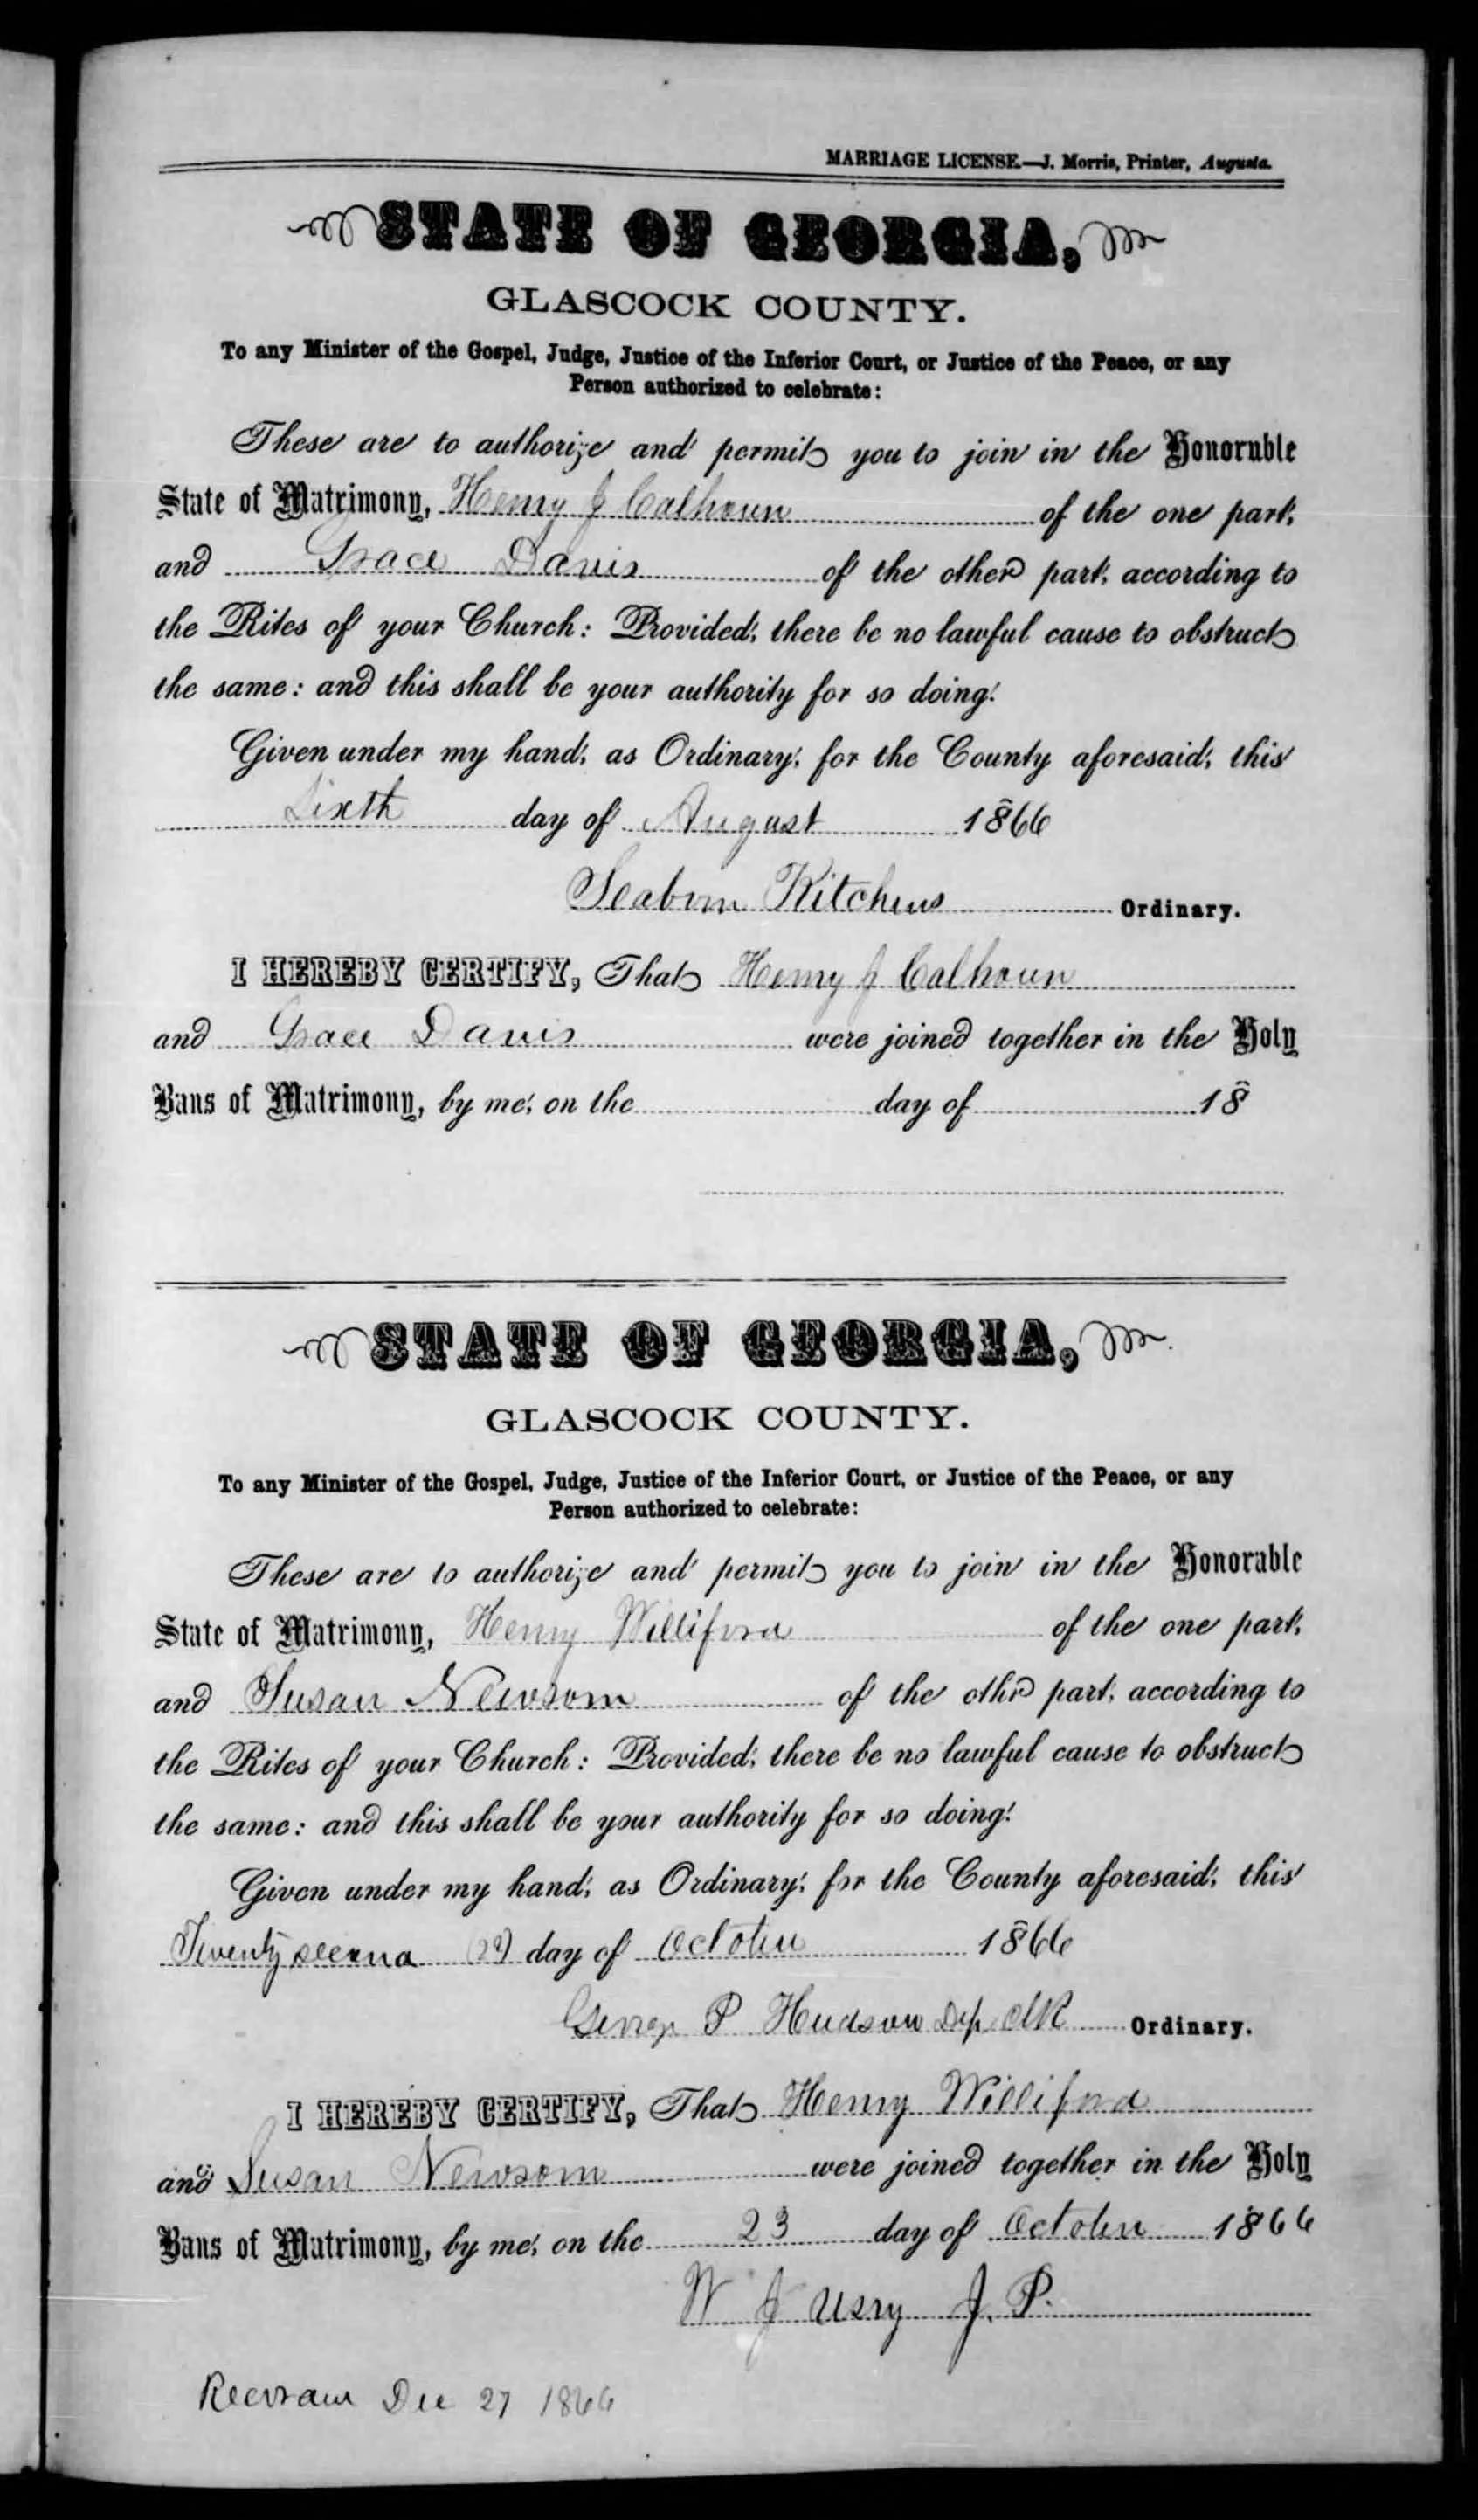 MARRIAGE LICENSE.—J. Morris, Printer, Augusta.
STATE OF GEORGIA,
GLASCOCK COUNTY.
To any Minister of the Gospel, Judge, Justice of the Inferior Court, or Justice of the Peace, or any
Person authorized to celebrate:
These are to authorize and permit you to join in the Honorable
State of Matrimony, Henry J Calhoun of the one part,
and Grace Davis of the other part, according to
the Rites of your Church: Provided, there be no lawful cause to obstruct
the same: and this shall be your authority for so doing.
Given under my hand, as Ordinary, for the County aforesaid, this
Sixth day of August 1866
Seaborn Kitchens Ordinary.
I HEREBY CERTIFY, That Henry J Calhoun
and Grace Davis were joined together in the Holy
Bans of Matrimony, by me, on the day of 18
STATE OF GEORGIA,
GLASCOCK COUNTY.
To any Minister of the Gospel, Judge, Justice of the Inferior Court, or Justice of the Peace, or any
Person authorized to celebrate:
These are to authorize and permit you to join in the Honorable
State of Matrimony, Henry Williford of the one part,
and Susan Newsom of the othr part, according to
the Rites of your Church: Provided, there be no lawful cause to obstruct
the same: and this shall be your authority for so doing.
Given under my hand, as Ordinary, for the County aforesaid, this
Twenty second day of October 1866
George P Hudson Dep Clk Ordinary.
I HEREBY CERTIFY, That Henry Williford
and Susan Newsom were joined together in the Holy
Bans of Matrimony, by me, on the 23 day of October 1866
W J Usry J. P.
Record Dec 27 1866